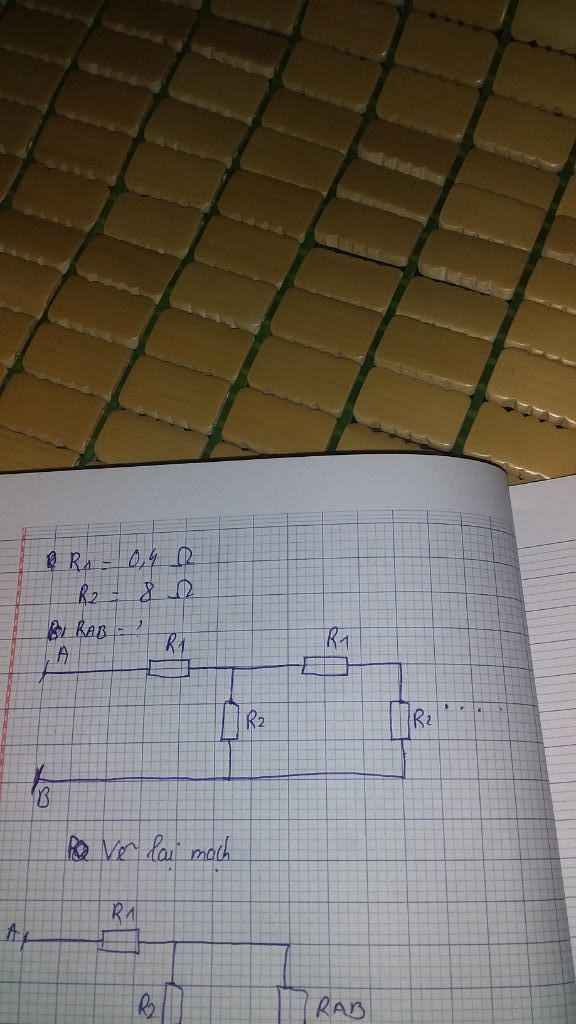 R1 = 0,4 Ω
R2 = 8 Ω
RAB = ?
A
R1
R1
R2
R2 . . . .
B
Vẽ lại mạch
A
R1
R2
RAB